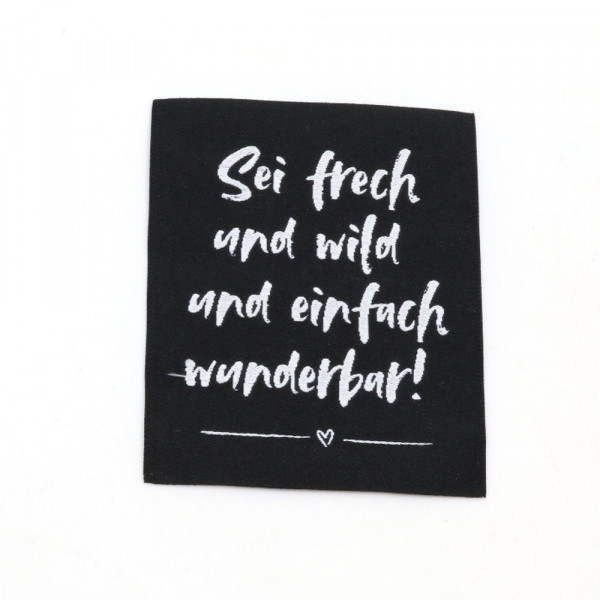 Sei frech
und wild
und einfach
wunderbar!